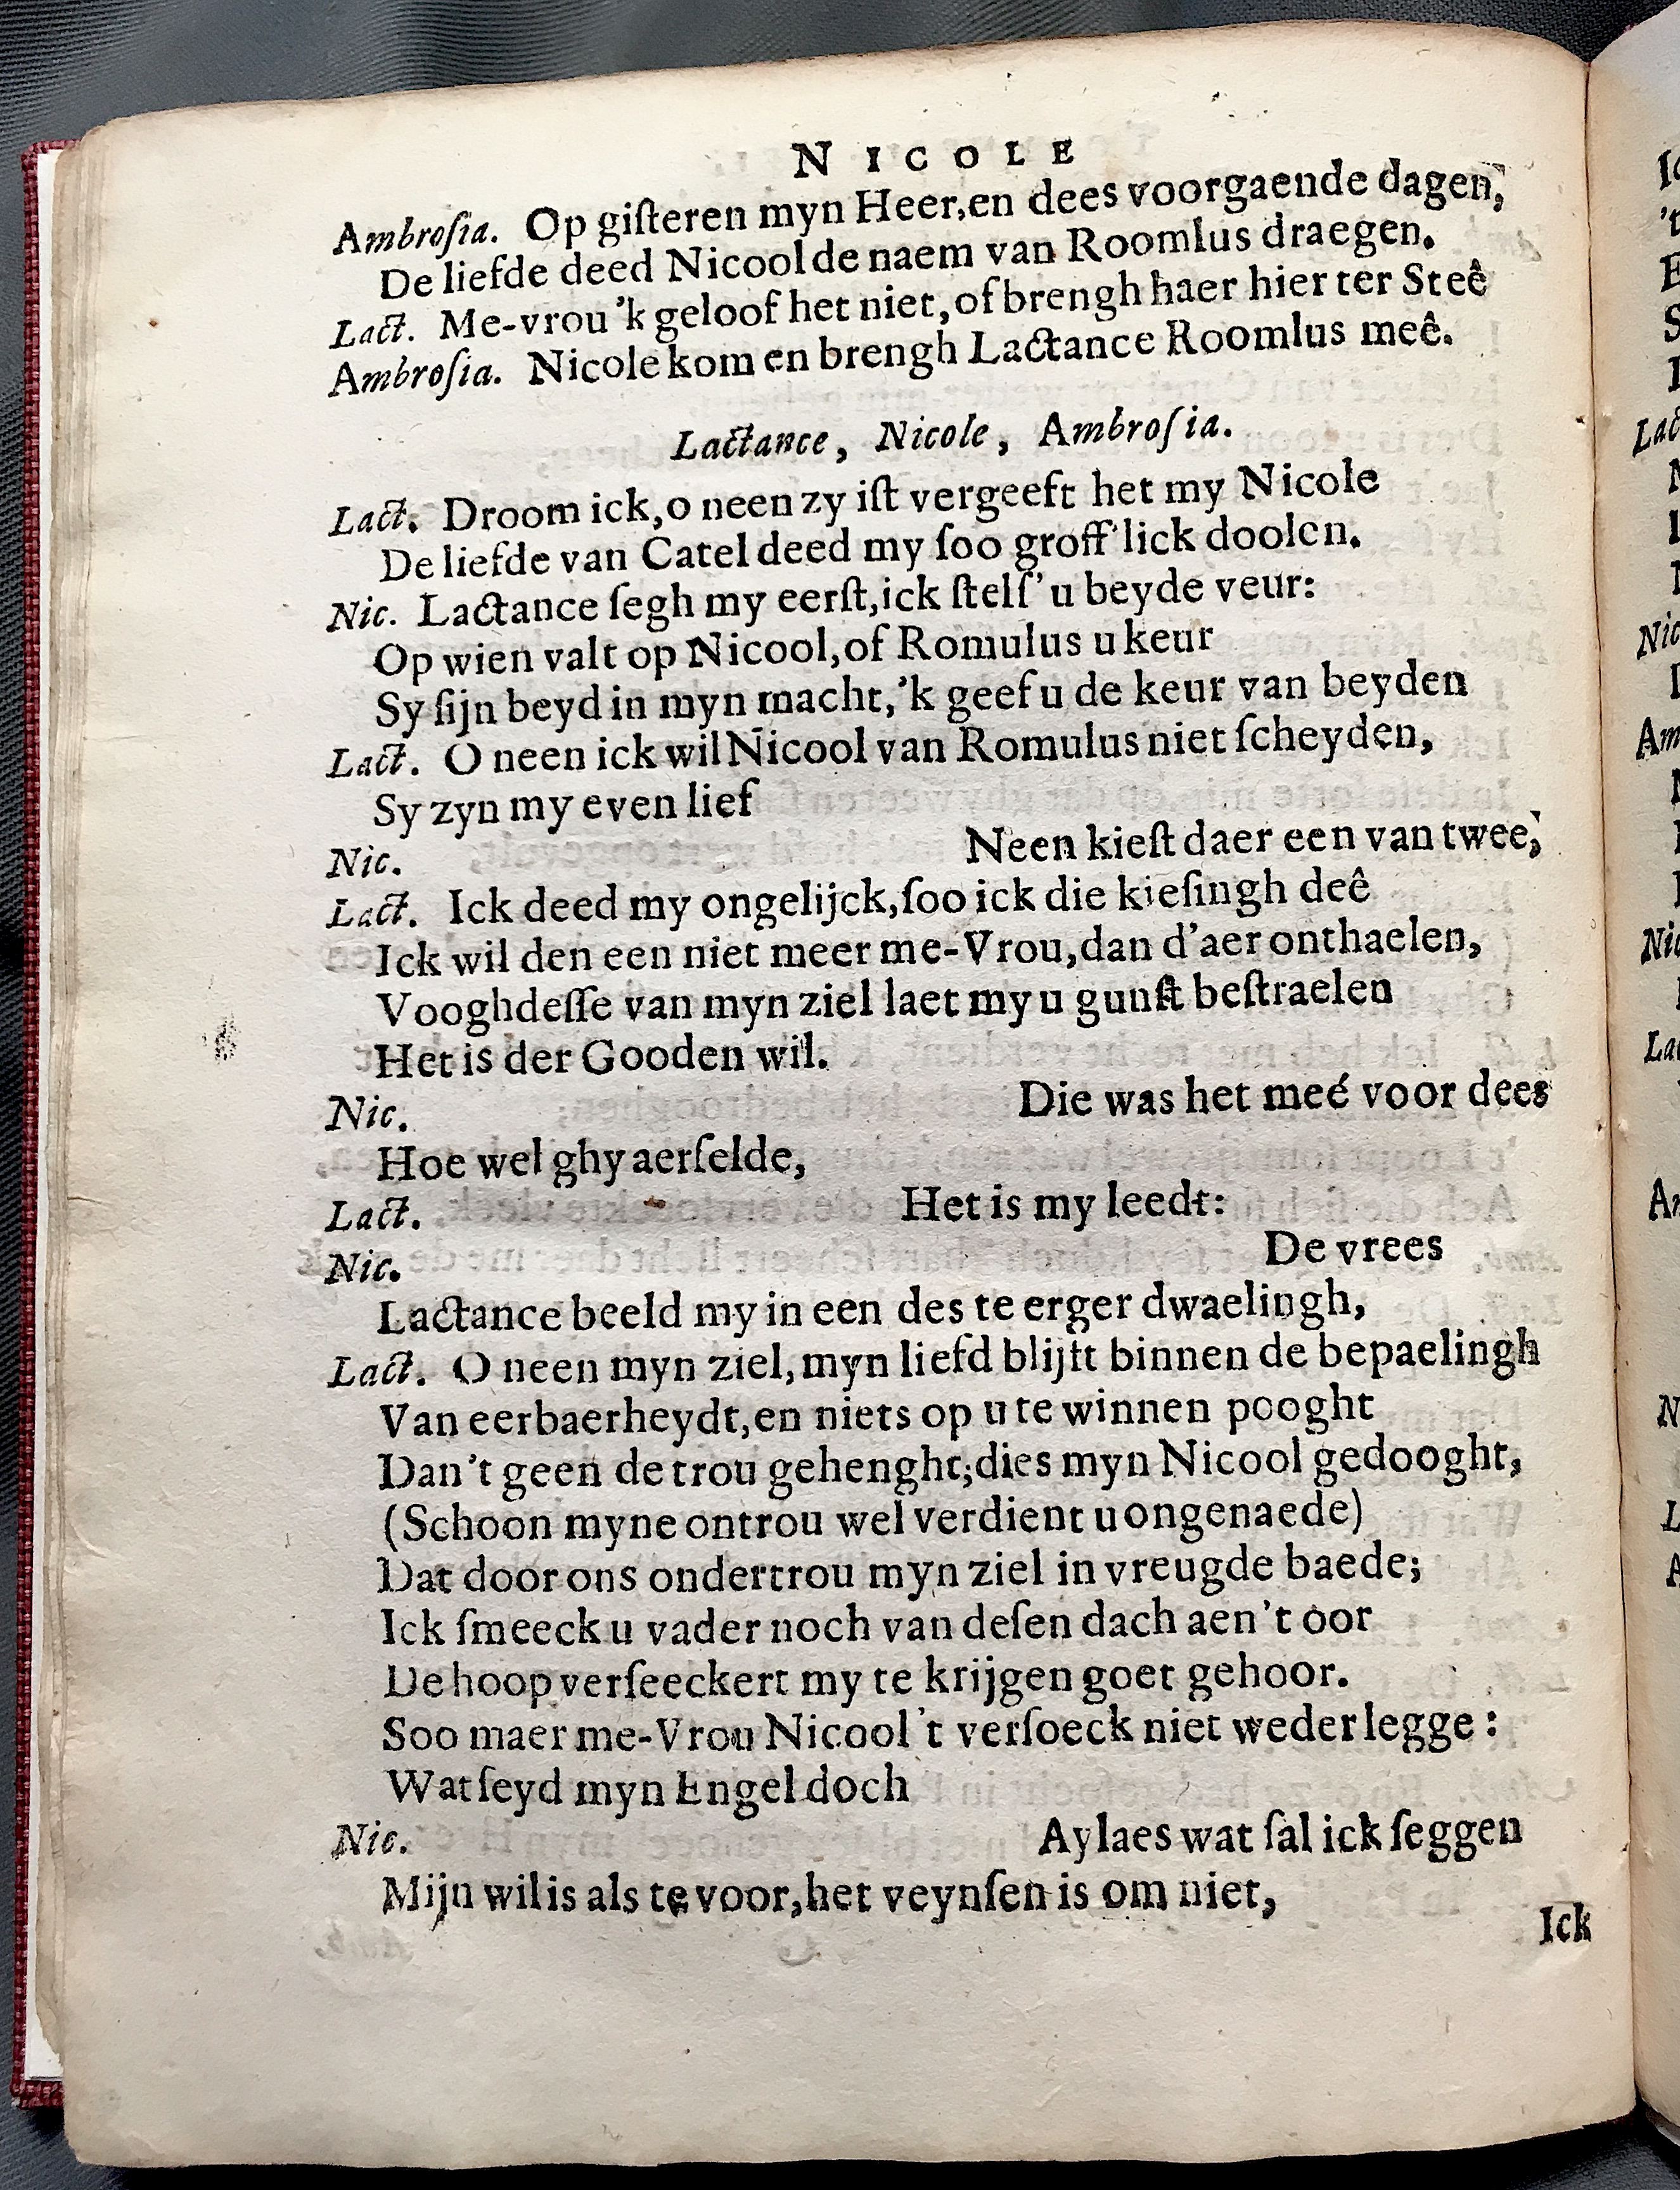 NICOLE
Ambroſia. Op giſteren myn Heer,en dees voorgaende dagen,
De liefde deed Nicool de naem van Roomlus draegen.
Lact. Me-vrou 'k geloof het niet, of brengh haer hier ter Steê
Ambroſia. Nicole kom en brengh Lactance Roomlus meê.
Lactance, Nicole, Ambroſia.
Lact. Droom ick,o neen zy iſt vergeeft het my Nicole
De liefde van Catel deed my ſoo groff'lick doolen.
Nic. Lactance ſegh my eerſt,ick ſtelſ' u beyde veur:
Op wien valt op Nicool,of Romulus u keur
Sy ſijn beyd in myn macht,'k geef u de keur van beyden
Lact. O neen ick wil Nicool van Romulus niet ſcheyden,
Sy zyn my even lief
Nic. Neen kieſt daer een van twee,
Lact. Ick deed my ongelijck,ſoo ick die kieſingh deê
Ick wil den een niet meer me-Vrou,dan d'aer onthaelen,
Vooghdeſſe van myn ziel laet my u gunſt beſtraelen
Het is der Gooden wil.
Nic. Die was het meé voor dees
Hoe wel ghy aerſelde,
Lact. Het is my leedt:
Nic. De vrees
Lactance beeld my in een des te erger dwaelingh,
Lact. O neen myn ziel, myn liefd blijft binnen de bepaelingh
Van eerbaerheydt,en niets op u te winnen pooght
Dan't geen de trou gehenght;dies myn Nicool gedooght,
(Schoon myne ontrou wel verdient u ongenaede)
Dat door ons ondertrou myn ziel in vreugde baede;
Ick ſmeeck u vader noch van deſen dach aen't oor
De hoop verſeeckert my te krijgen goet gehoor.
Soo maer me-Vrou Nicool 't verſoeck niet wederlegge:
Wat ſeyd myn Engel doch
Nic. Aylaes wat ſal ick ſeggen
Mijn wil is als te voor,het veynſen is om niet,
Ick